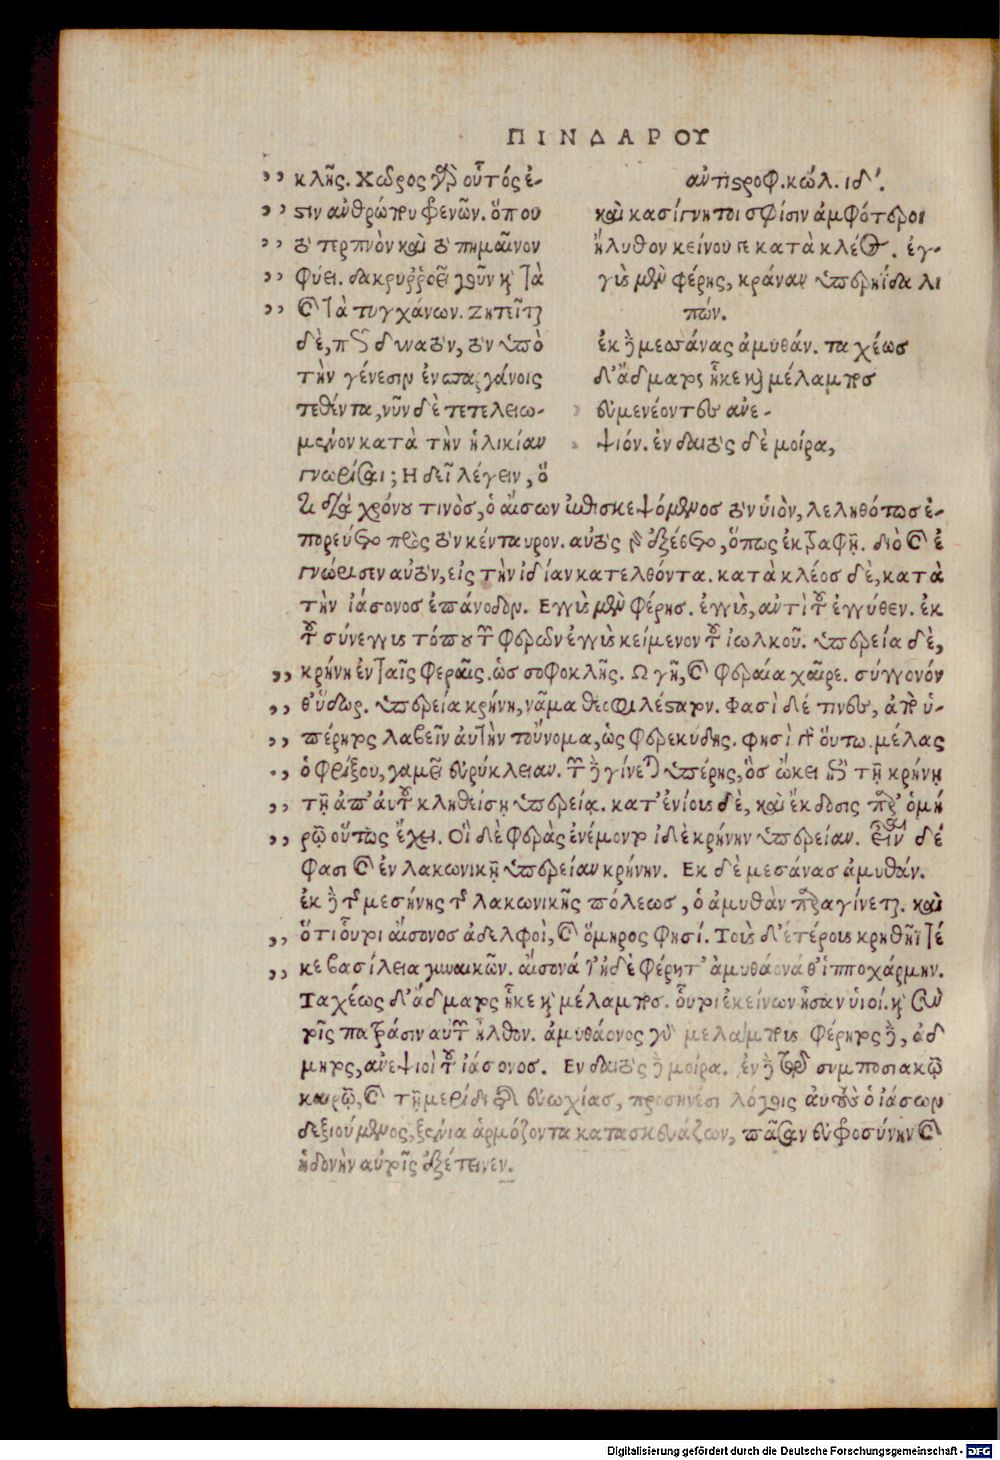 ΠΙΝΔΑΡΟΥ
κλῆς. Χῶρος γὰρ οὗτός ἐ-
στιν ἀνθρώπου φρενῶν. ὅπου
τὸ τερπνὸν καὶ τὸ πημαῖνον
φύει. δακρυῤῥοεῖ γοῦν καὶ τὰ
καὶ τὰ τυγχάνων. Ζητεῖται
δὲ, πῶς δύναται τὸν, τὸν ὑπὸ
τὴν γένεσιν ἐν σπαργάνοις
τεθέντα, νῦν δὲ τετελειω-
μένον κατὰ τὴν ἡλικίαν
γνωρίσαι; Η δεῖ λέγειν, ὅ
αντιστροφ. κώλ. ιδ'.
καὶ κασίγνητοι σφίσιν ἀμφότεροι
ἤλυθον κείνου γε κατὰ κλέος. ἐγ-
γὺς μὲν φέρης, κράναν ὑπερηΐδα λι
πών.
ἐκ δὲ μεσσάνας ἀμυθάν. ταχέως
δ' ἄδματος ἧκε καὶ μέλαμπος
εὐμενέοντες ἀνε-
ψιόν. ἐν δαιτὸς δὲ μοίρᾳ,
τι διὰ χρόνου τινὸς, ὁ αἴσων ἐπισκεψόμενος τὸν ὑιὸν, λεληθότως ἐ-
πορεύετο πρὸς τὸν κένταυρον. αὐτὸς παρεξέβετο, ὅπως ἐκτραφῇ. διὸ καὶ ἐ
γνώρισεν αὐτὸν, εἰς τὴν ἰδίαν κατελθόντα. κατὰ κλέος δὲ, κατὰ
τὴν ἰάσονος ἐπάνοδον. Εγγὺς μὲν φέρης. ἐγγὺς, αντὶ τοῦ ἐγγύθεν. ἐκ
τοῦ σύνεγγυς τόπου τῶν φερῶν ἐγγὺς κείμενον τοῦ ἰωλκοῦ. ὑπέρεια δὲ,
κρήνη ἐν ταῖς φεραῖς. ὡς σοφοκλῆς. Ω γῆ, καὶ φεραία χαῖρε. σύγγονόν
θ' ὕδωρ. ὑπέρεια κρήνη, νᾶμα θεοφιλέστατον. Φασὶ δέ τινες, ἀπὸ ὑ-
πέρητος λαβεῖν αὐτὴν τοὔνομα, ὡς φερεκύδης. φησὶ γὰρ οὕτω. μέλας
ὁ φρίξου, γαμεῖ εὐρύκλειαν. τῶν δὲ γίνεται ὑπέρης, ὃς ᾤκει ἐπὶ τῇ κρήνῃ
τῇ ἀπ' αὐτοῦ κληθείσῃ ὑπερείᾳ. κατ' ἐνίους δὲ, καὶ ἔκδοσις παρ' ὁμή
ρῳ οὕτως ἔχει. Οἳ δὲ φερὰς ἐνέμοντο ἰδὲ κρήνην ὑπέρειαν. εἶναι δέ
φασι καὶ ἐν λακωνικῇ ὑπέρειαν κρήνην. Εκ δὲ μεσάνας ἀμυθάν.
ἐκ δὲ τῆς μεσήνης τῆς λακωνικῆς πόλεως, ὁ ἀμυθὰν παραγίνεται. καὶ
ὅτι οὗτοι αἴσονος ἀδελφοὶ, καὶ ὅμηρος φησί. Τοὺς δ' ἑτέρους κρηθῆϊ τέ
κε βασίλεια γυναικῶν. αἴσονά τ' ἠδὲ φέρητ' ἀμυθάονά θ' ἱπποχάρμην.
Ταχέως δ' ἄδματος ἧκε καὶ μέλαμπος. οὗτοι ἐκείνων ἦσαν ὑιοί. καὶ σὺν
τοῖς πατράσιν αὐτῶν ἦλθον. ἀμυθάονος μὲν μελάμπους φέρητος δὲ, ἄδ
μητος, ἀνεψιοὶ τοῦ ἰάσονος. Εν δαιτὸς δὲ μοίρᾳ. ἐν δὲ τῷ συμποσιακῷ
καιρῷ, καὶ τῇ μερίδι τῆς εὐωχίας, προσηνέσι λόγοις αὐτοὺς ὁ ἰάσων
δεξιούμενος, ξένια ἁρμόζοντα κατασκευάζων, πᾶσαν εὐφροσύνην καὶ
ἡδονὴν αὐτοῖς ἐξέτεινεν.
Digitalisierung gefördert durch die Deutsche Forschungsgemeinschaft - DFG